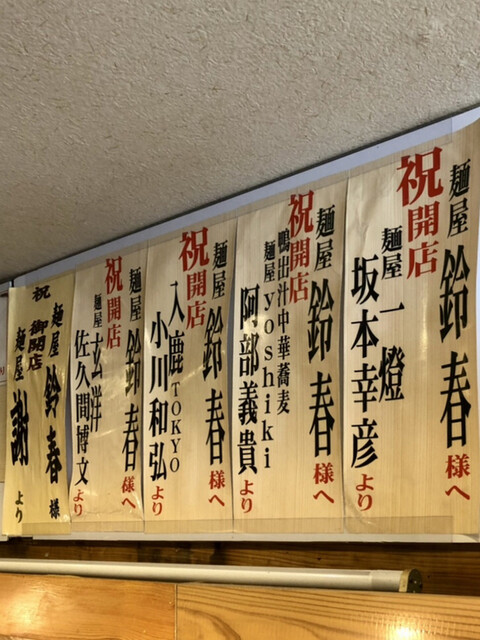 麺屋 鈴春 様へ
祝開店
麺屋 一燈
坂本幸彦 より
麺屋 鈴春 様へ
祝開店
鴨出汁中華蕎麦
麺屋yoshiki
阿部義貴 より
麺屋 鈴春 様へ
祝開店
入鹿TOKYO
小川和弘 より
麺屋 鈴春 様へ
祝開店
麺屋 玄洋
佐久間博文 より
麺屋 鈴春 様
祝 御開店
麺屋 謝 より